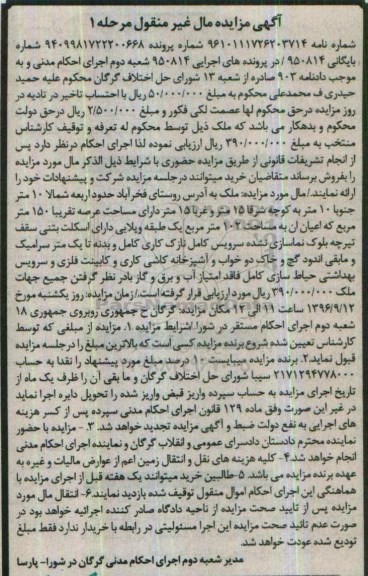 آگهی مزایده مال غیر منقول مرحله ۱
شماره نامه ۹۶۱۰۱۱۱۷۲۶۲۰۳۷۱۴ شماره پرونده ۹۴۰۹۹۸۱۷۲۲۲۰۰۶۶۸ شماره
بایگانی ۹۵۰۸۱۴ / در پرونده های اجرایی ۹۵۰۸۱۴ شعبه دوم اجرای احکام مدنی و به
موجب دادنامه ۹۰۲ صادره از شعبه ۱۳ شورای حل اختلاف گرگان محکوم علیه حمید
حیدری ف محمدعلی محکوم به مبلغ ۵۰/۰۰۰/۰۰۰ ریال با احتساب تاخیر در تادیه در
روز مزایده درحق محکوم لها عصمت لکی فکور و مبلغ ۲/۵۰۰/۰۰۰ ریال درحق دولت
محکوم و بدهکار می باشد که ملک ذیل توسط محکوم له تعرفه و توقیف کارشناس
منتخب به مبلغ ۳۹۰/۰۰۰/۰۰۰ ریال ارزیابی نموده لذا اجرای احکام درنظر دارد پس
از انجام تشریفات قانونی از طریق مزایده حضوری با شرایط ذیل الذکر مال مورد مزایده
را بفروش برساند متقاضیان خرید میتوانند درجلسه مزایده شرکت و پیشنهادات خود را
ارائه نمایند./ مال مورد مزایده: ملک به آدرس روستای فخرآباد حدود اربعه شمالا ۱۰ متر
جنوبا ۱۰ متر به کوچه شرقا ۱۵ متر و غربا ۱۵ متر دارای مساحت عرصه تقریبا ۱۵۰ متر
مربع که اعیان ان به مساحت ۱۰۲ متر مربع یک طبقه ویلایی دارای اسکلت بتنی سقف
تیرچه بلوک نماسازی نشده سرویس کامل نازک کاری کامل و بدنه تا یک متر سرامیک
و مابقی اندود گچ و خاک دو خواب و آشپزخانه کاشی کاری و کابینت فلزی و سرویس
بهداشتی حیاط سازی کامل فاقد امتیاز آب و برق و گاز بادر نظر گرفتن جمیع جهات
ملک ۳۹۰/۰۰۰/۰۰۰ ریال مورد ارزیابی قرار گرفته است./ زمان مزایده: روز یکشنبه مورخ
۱۳۹۶/۹/۱۲ ساعت ۱۱ الی ۱۲ مکان مزایده: گرگان خ جمهوری روبروی جمهوری ۱۸
شعبه دوم اجرای احکام مستقر در شورا/ شرایط مزایده ۱. مزایده از مبلغی که توسط
کارشناس تعیین شده شروع برنده مزایده کسی است که بالاترین مبلغ را درجلسه مزایده
قبول نماید ۲. برنده مزایده میبایست ۱۰ درصد مبلغ مورد پیشنهاد را نقدا به حساب
۲۱۷۱۲۹۴۷۷۸۰۰۰ سیبا شورای حل اختلاف گرگان و ما بقی آن را ظرف یک ماه از
تاریخ اجرای مزایده به حساب سپرده واریز قبض واریز شده را تحویل دایره اجرا نماید
در غیر این صورت وفق ماده ۱۲۹ قانون اجرای احکام مدنی سپرده پس از کسر هزینه
های اجرایی به نفع دولت ضبط و آگهی مزایده تجدید خواهد شد. ۳. - مزایده با حضور
نماینده محترم دادستان دادسرای عمومی و انقلاب گرگان و نماینده اجرای احکام مدنی
انجام خواهد شد ۴- کلیه هزینه های نقل و انتقال زمین اعم از عوارض مالیات و غیره به
عهده برنده مزایده می باشد. ۵-طالبین خرید میتوانند یک هفته قبل از اجرای مزایده با
هماهنگی این اجرای احکام اموال منقول توقیف شده بازدید نمایند.۶- انتقال مال مورد
مزایده پس از تایید صحت مزایده از ناحیه دادگاه صادر کننده اجرائیه خواهد بود در
صورت عدم تائید صحت مزایده این اجرا مسئولیتی در رابطه با خریدار ندارد فقط مبلغ
تودیع شده عودت خواهد شد.
مدیر شعبه دوم اجرای احکام مدنی گرگان در شورا- پارسا